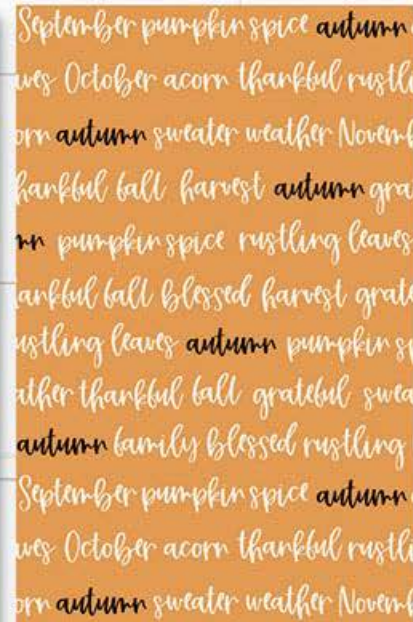 September pumpkin spice autumn
ves October acorn thankful rustli
orn autumn sweater weather Novemb
hankful fall harvest autumn gra
mn pumpkin spice rustling leaves
ankful fall blessed harvest grate
ustling leaves autumn pumpkin sp
ather thankful fall grateful swea
autumn family blessed rustling
September pumpkin spice autumn
ves October acorn thankful rustli
orn autumn sweater weather Novemb